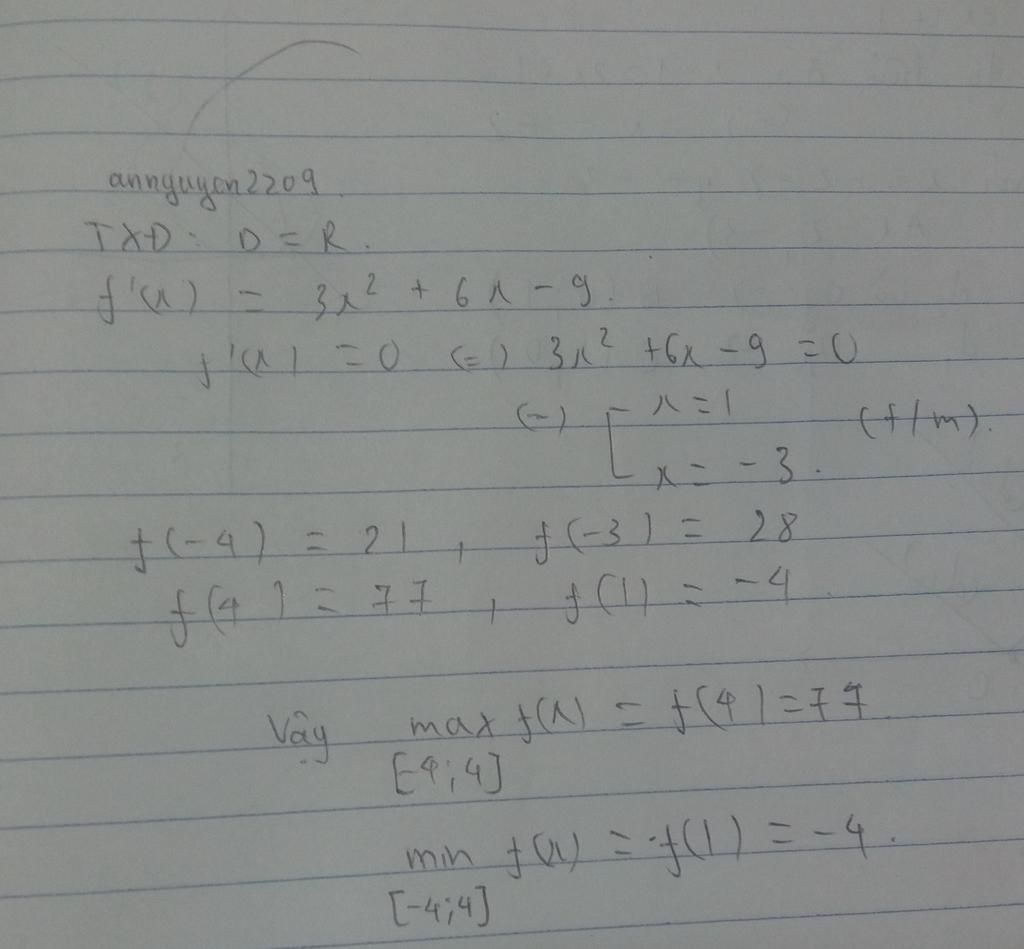 annguyen2209.
TXĐ: D = R.
f'(x) = 3x² + 6x - 9.
f'(x) = 0 (=) 3x² + 6x - 9 = 0
(=) [ x = 1
x = -3. (t/m).
f(-4) = 21, f(-3) = 28
f(4) = 77, f(1) = -4.
Vậy max f(x) = f(4) = 77
[-4;4]
min f(x) = f(1) = -4.
[-4;4]